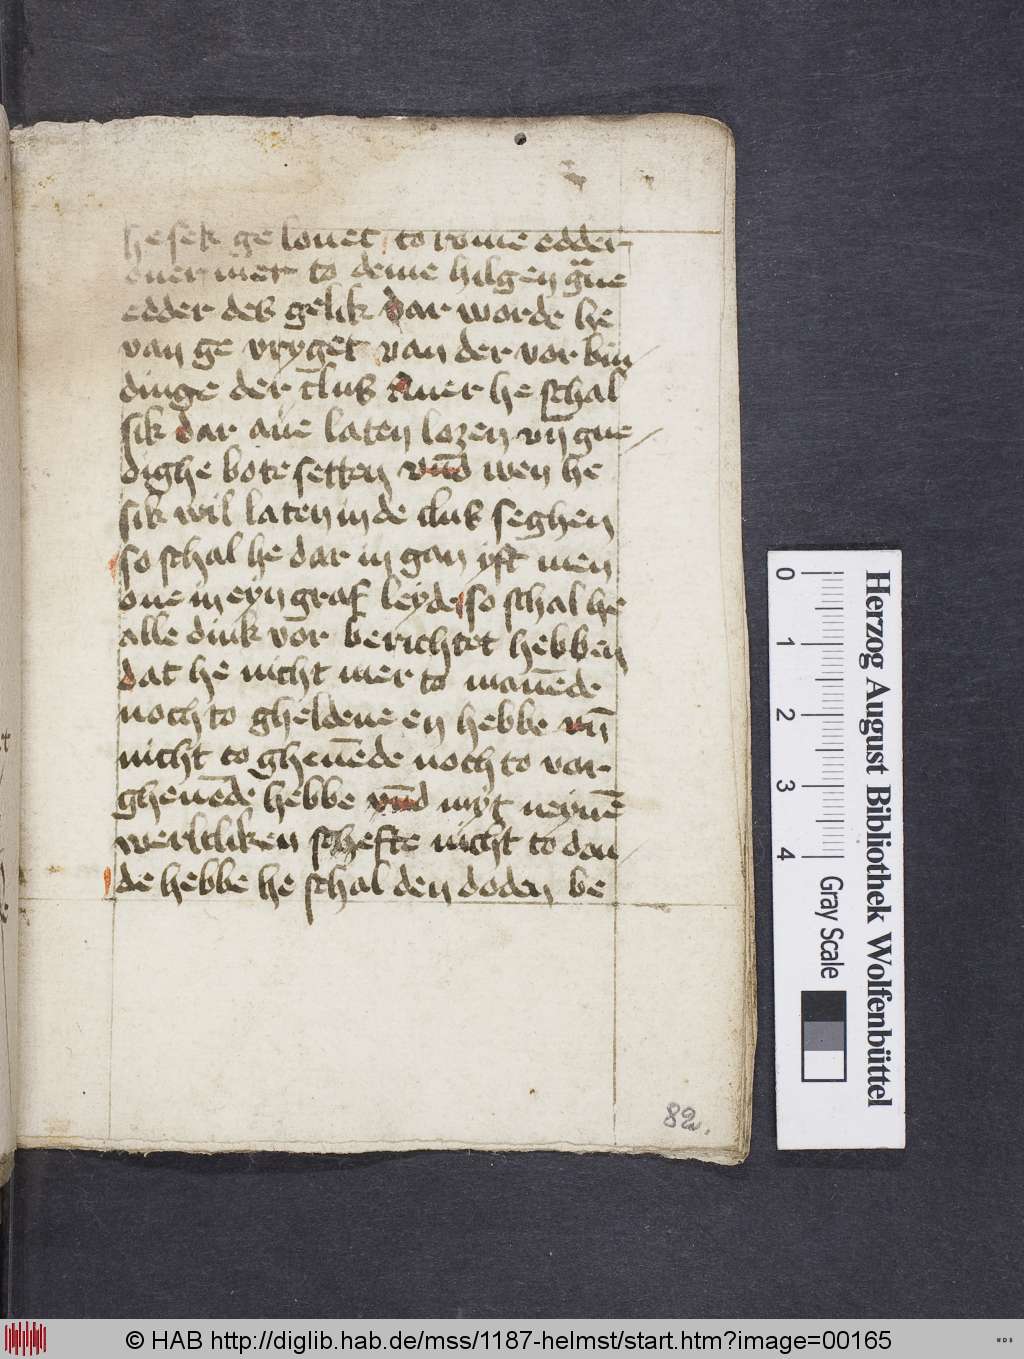 he sek ge louet to rome edder
ouer mer to deme hilgen g̃ue
edder des gelik dar worde he
van ge vryget van der vor bin/
dinge der clus Auer he schal
sik dar aue laten lozen vn̄ gne/
dighe bote setten vn̄d wen he
sik wil laten in de clus seghen
so schal he dar in gan yft men
one in eyn graf leyde so schal he
alle dink vor berichtet hebben
dat he nicht mer to manēde
noch to gheldene en hebbe vn̄
nicht to gheuēde noch to vor
gheuēde hebbe vn̄d myt neynē
werltliken schefte nicht to don/
de hebbe he schal den doden be
82.
0
1
2
3
4
Gray Scale
Herzog August Bibliothek Wolfenbüttel
© HAB http://diglib.hab.de/mss/1187-helmst/start.htm?image=00165